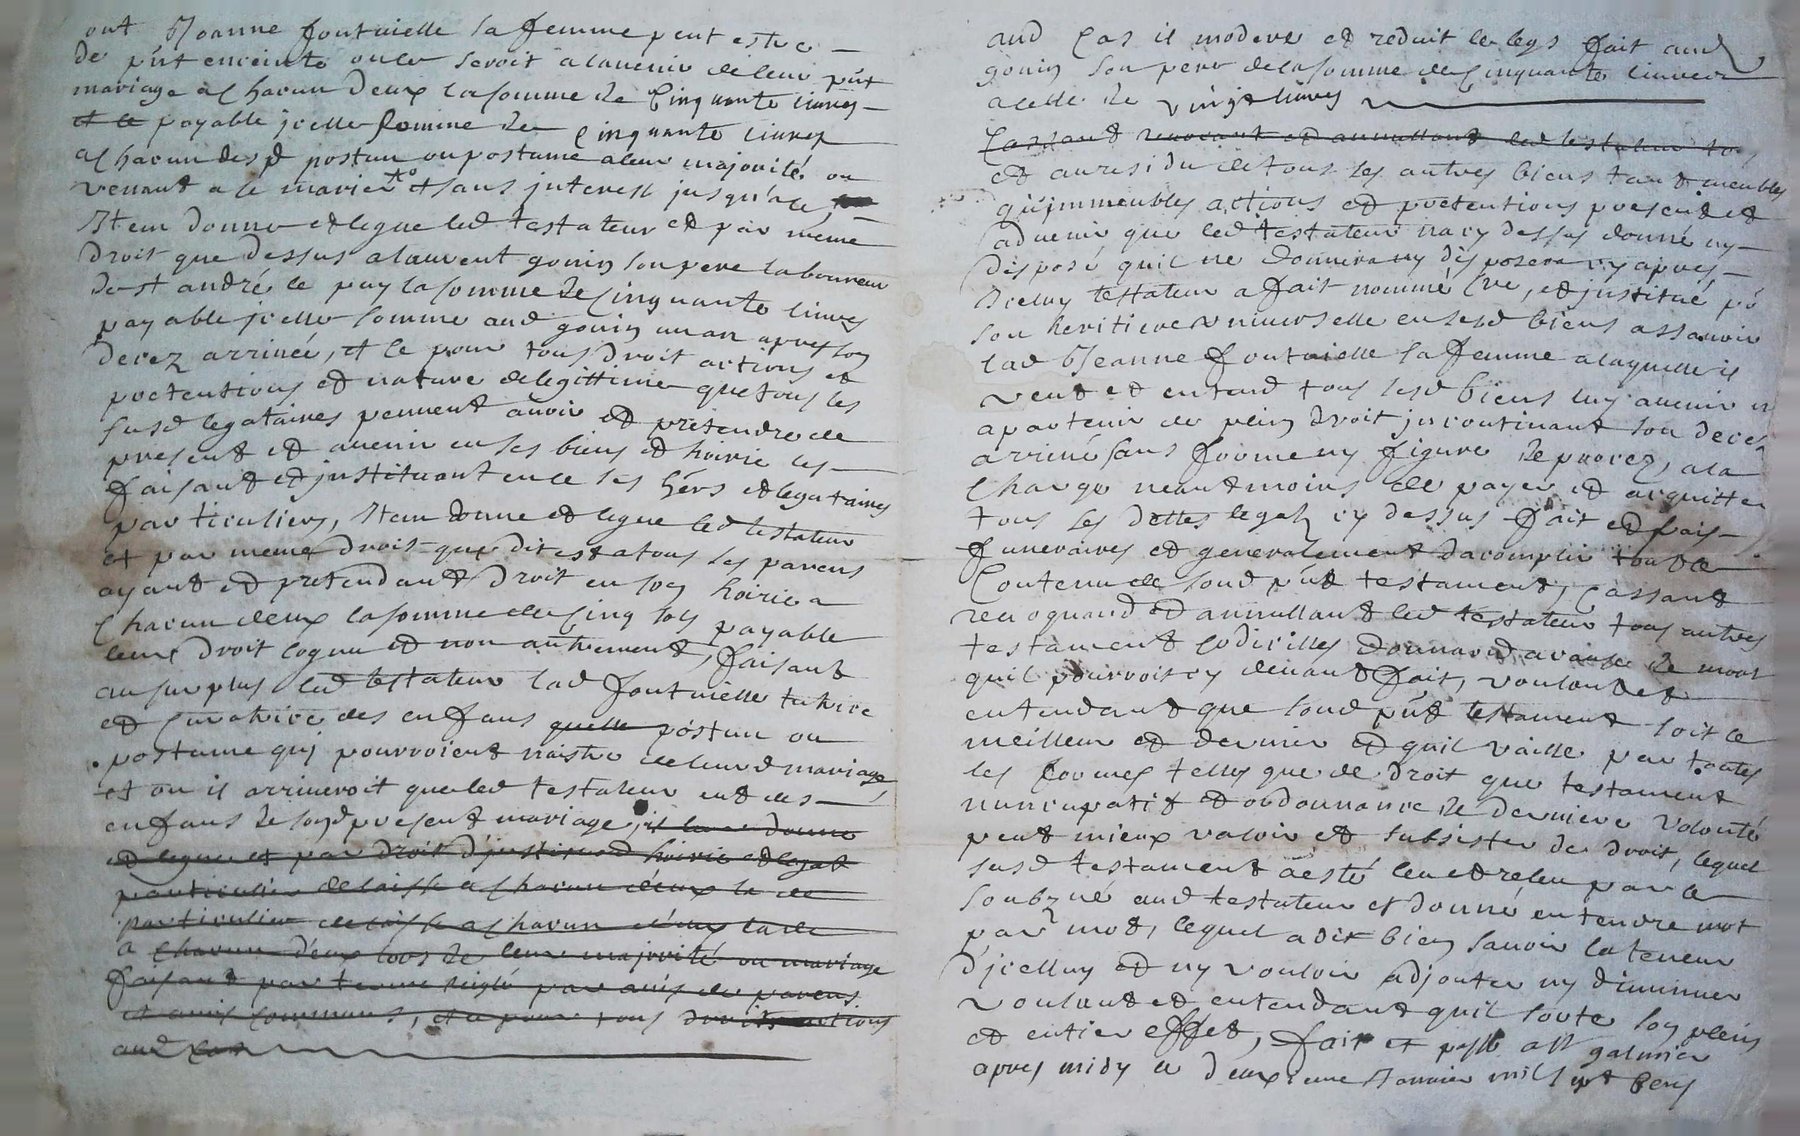 ont Jeanne fontvielle sa femme peut estre
de pnt enceinte ou le seroit a lavenir de leur pnt
mariage a chacun deux la somme de Cinquante livres
et ce payable jcelle somme de cinquante livres
a chacun desd postun ou postume a leur majorité ou
venant a se marier et sans jnterest jusqu'a ce
Item donne et legue led testateur et par meme
droit que dessus a laurent gonin son pere laboureur
de st andré le puy la somme de cinquante livres
payable jcelle somme aud gonin un an apres son
decez arrivée, et ce pour tous droit actions et
pretentions et nature de legittime que tous les
susd legataires peuvent avoir et pretendre de
present et avenir en ses biens et hoirie les
faisant et jnstituant en ce ses hers et legataires
particuliers, Item donne et legue led testateur
et par meme droit que dit est a tous ses parens
ayant et pretendant droit en son hoirie a
chacun deux la somme de cinq sols payable
leur droit cognu et non autrement, faisant
au surplus led testateur lad fontvielle tutrice
et curatrice des enfans quelle postun ou
postume qui pourroient naistre de leurd mariage
et ou il arriveroit que led testateur eut des
enfans de sond present mariage, il leur donne
et legue et par droit d'jnstitution hoirie et legat
particulier delaisse a chacun d'eux la de
particulier delaisse a chacun d'eux la de
a chacun d'eux lors de leur majorité ou mariage
faisant par terme reiglé par avis de parens
et amis communs, et ce pour tous droits actions
aud cas
aud Cas il modere et reduit le legs fait aud
gonin son pere de la somme de cinquante livres
a celle de vingt livres
Cassant revocant et annullant led testateur tous
et au residu de tous ses autres biens tant meubles
qu'jmmeubles actions et pretentions present et
advenir que led testateur na cy dessus donné ny
disposé quil ne donnera ny disposera cy apres
Iceluy testateur a fait nommé Cré, et jnstitué pr
son heritiere universelle en sesd biens assavoir
lad Jeanne fontvielle sa femme a laquelle il
veut et entend tous sesd biens luy avenir et
apartenir de plein droit jncontinant son deces
arrivé sans forme ny figure de procez, a la
charge neautmoins de payer et acquitter
tous ses dettes legatz cy dessus fait et frais
funeraires et generalement dacomplir tout le
Contenu de sond pnt testament, Cassant
revoquand et annullant led testateur tous autres
testament codicilles donnaond a cause de mort
quil pourroit cy devant fait, voulant et
entendant que sond pnt testament soit le
meilleur et dernier et quil vaille par toutes
les formes telles que de droit que testament
nuncupatif et ordonnance de derniere volonté
peut mieux valoir et subsister de droit, lequel
susd testament a esté leu et releu par le
soubzné aud testateur et donné entendre mot
par mot, lequel a dit bien savoir la teneur
d'jcelluy et ny vouloir adjouter ny diminuer
voulant et entendant quil sorte son plein
et entier effet, fait et passé a st galmier
apres midy le deuxieme Janvier mil sept cens